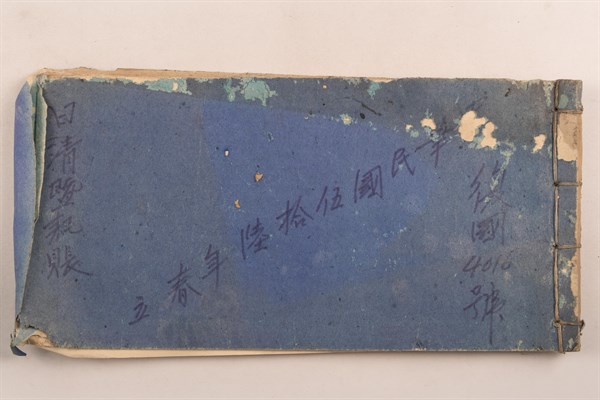 復國4016號
華民國伍拾陸年春立
日清賬